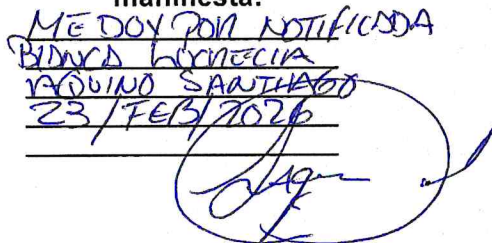 manifiesta:
ME DOY POR NOTIFICADA
BIANCA LUCRECIA
AQUINO SANTIAGO
23/FEB/2026